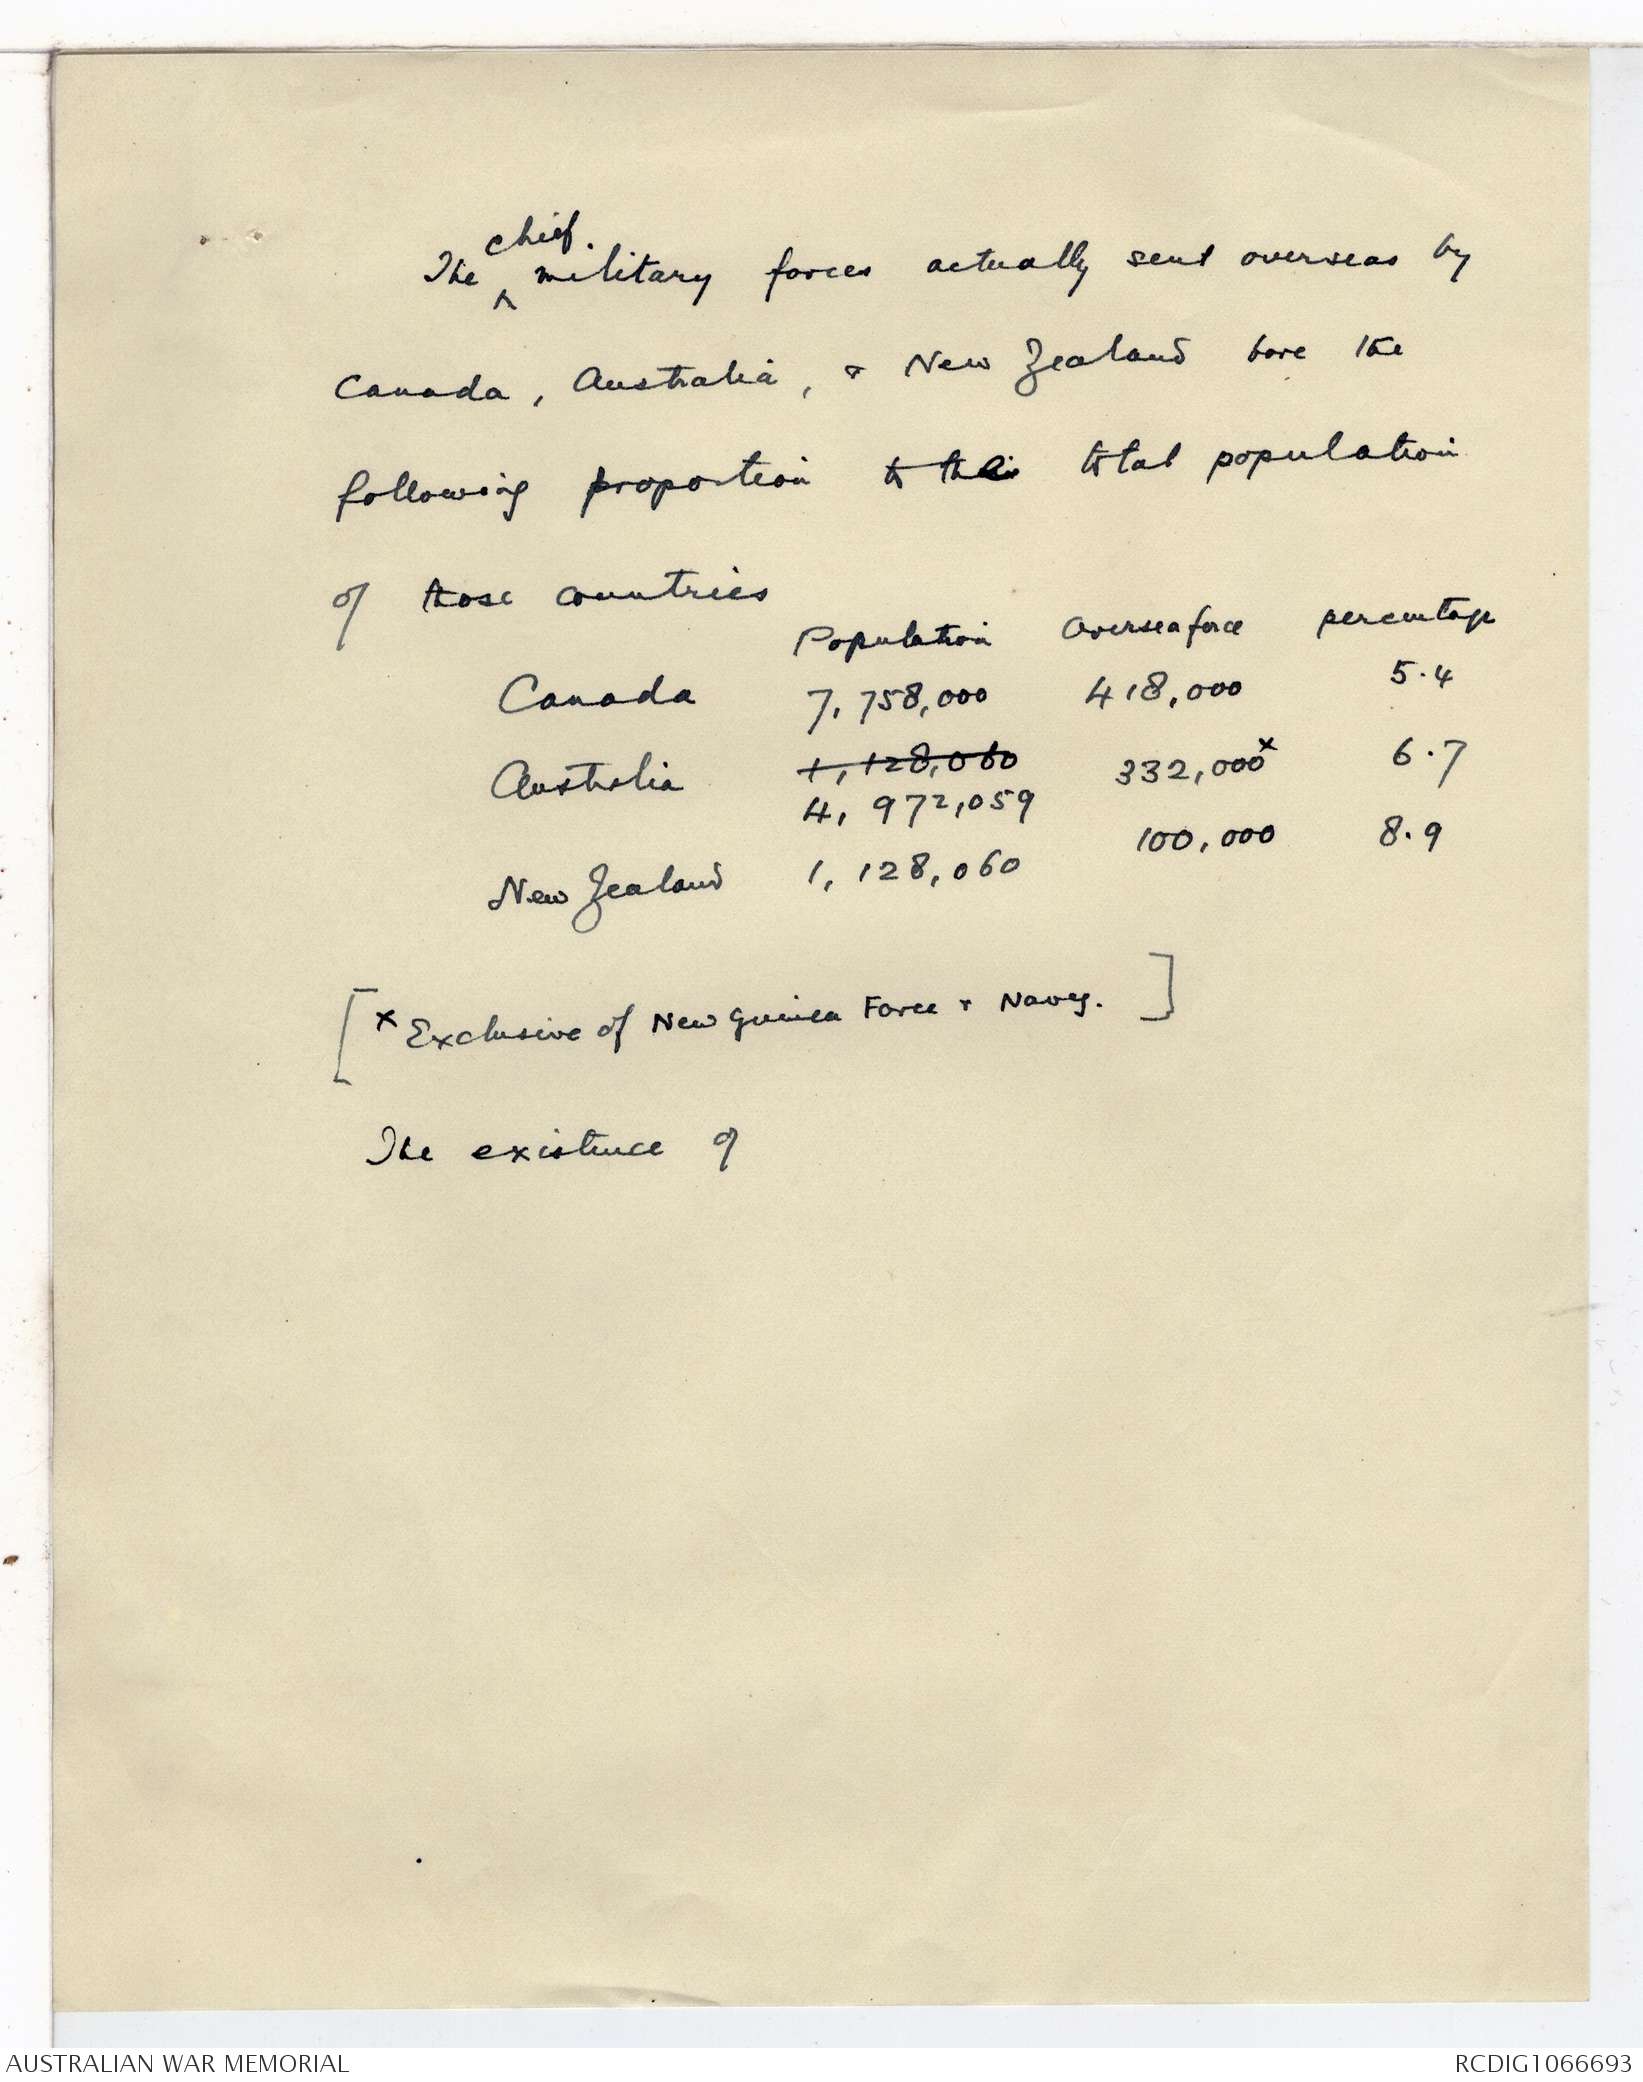 The chief military forces actually sent overseas by
Canada, Australia, & New Zealand bore the
following proportion to the total population
of those countries
Population Oversea force percentage
Canada 7,758,000 418,000 5.4
Australia 1,128,060 332,000x 6.7
4,972,059
New Zealand 1,128,060 100,000 8.9
[x Exclusive of New Guinea Force & Navy.]
The existence of
AUSTRALIAN WAR MEMORIAL
RCDIG1066693